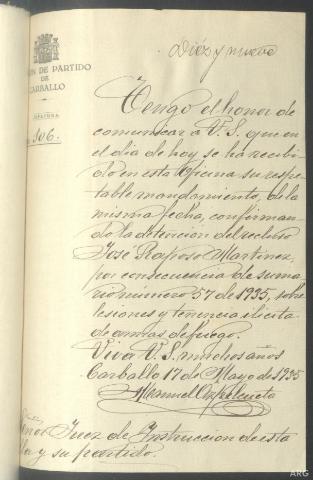 Diez y nueve
ON DE PARTIDO
DE
CARBALLO
306.
Tengo el honor de
comunicar á V. S. que en
el dia de hoy, se ha recibi-
do en esta Oficina su respe-
table mandamiento, de la
misma fecha, confirman-
do la detención del recluso
José Raposo Martinez,
por consecuencia de suma-
rio número 57 de 1935, sobre
lesiones y tenencia ilicita
de armas de fuego.
Viva V. S. muchos años
Carballo 17 de Mayo de 1935
Manuel
Juez de Instrucción de esta
y su partido.
ARG